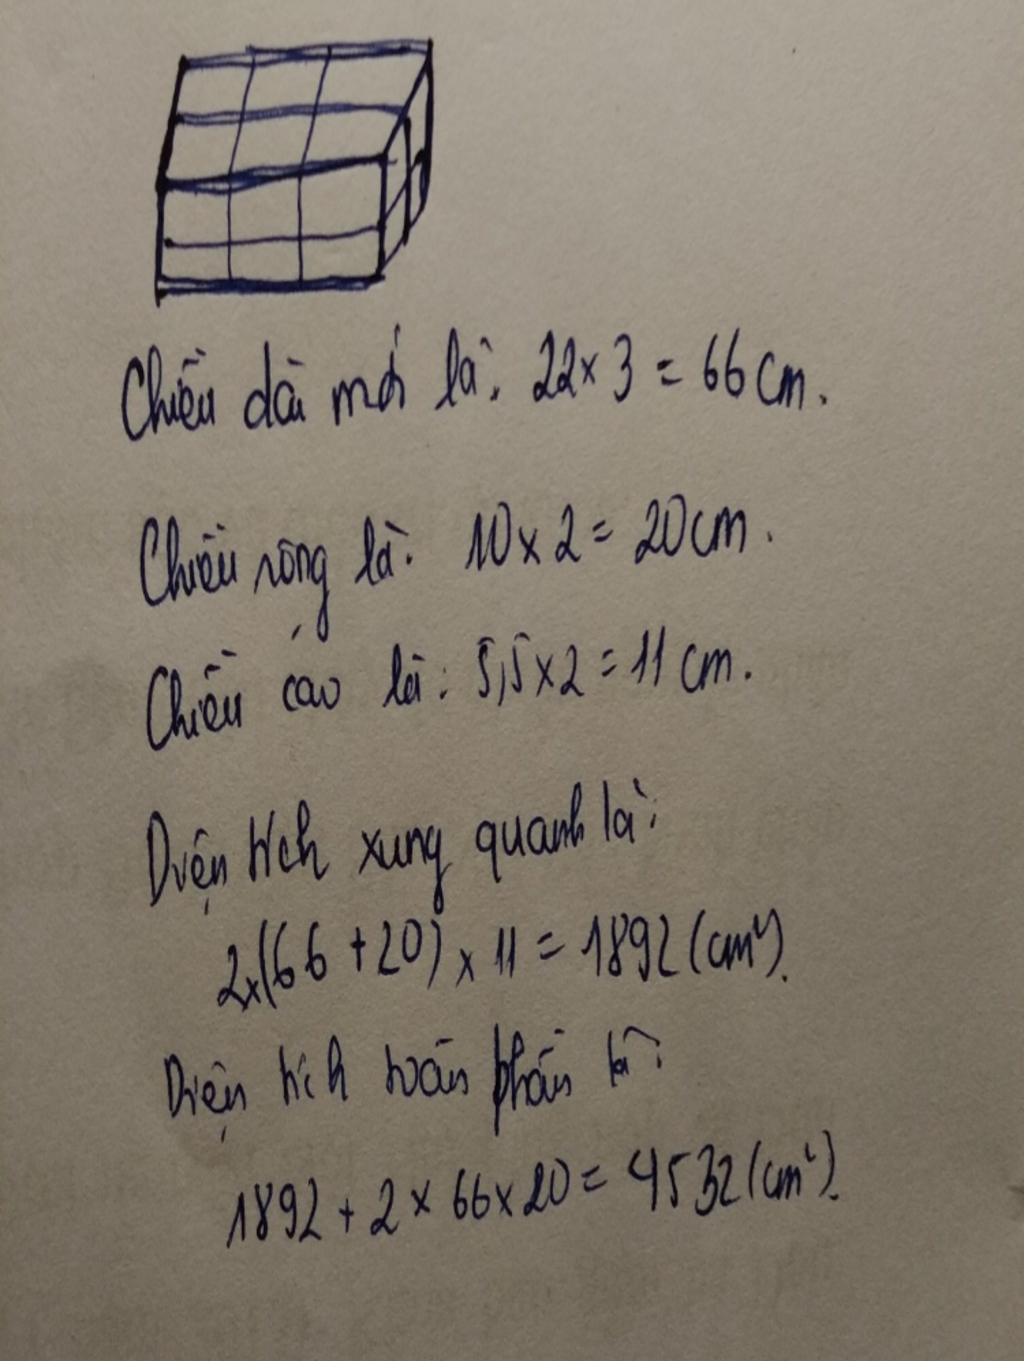 Chiều dài mới là: 22 x 3 = 66 cm.
Chiều rộng là: 10 x 2 = 20 cm.
Chiều cao là: 5,5 x 2 = 11 cm.
Diện tích xung quanh là:
2 x (66 + 20) x 11 = 1892 (cm²).
Diện tích toàn phần là:
1892 + 2 x 66 x 20 = 4532 (cm²).